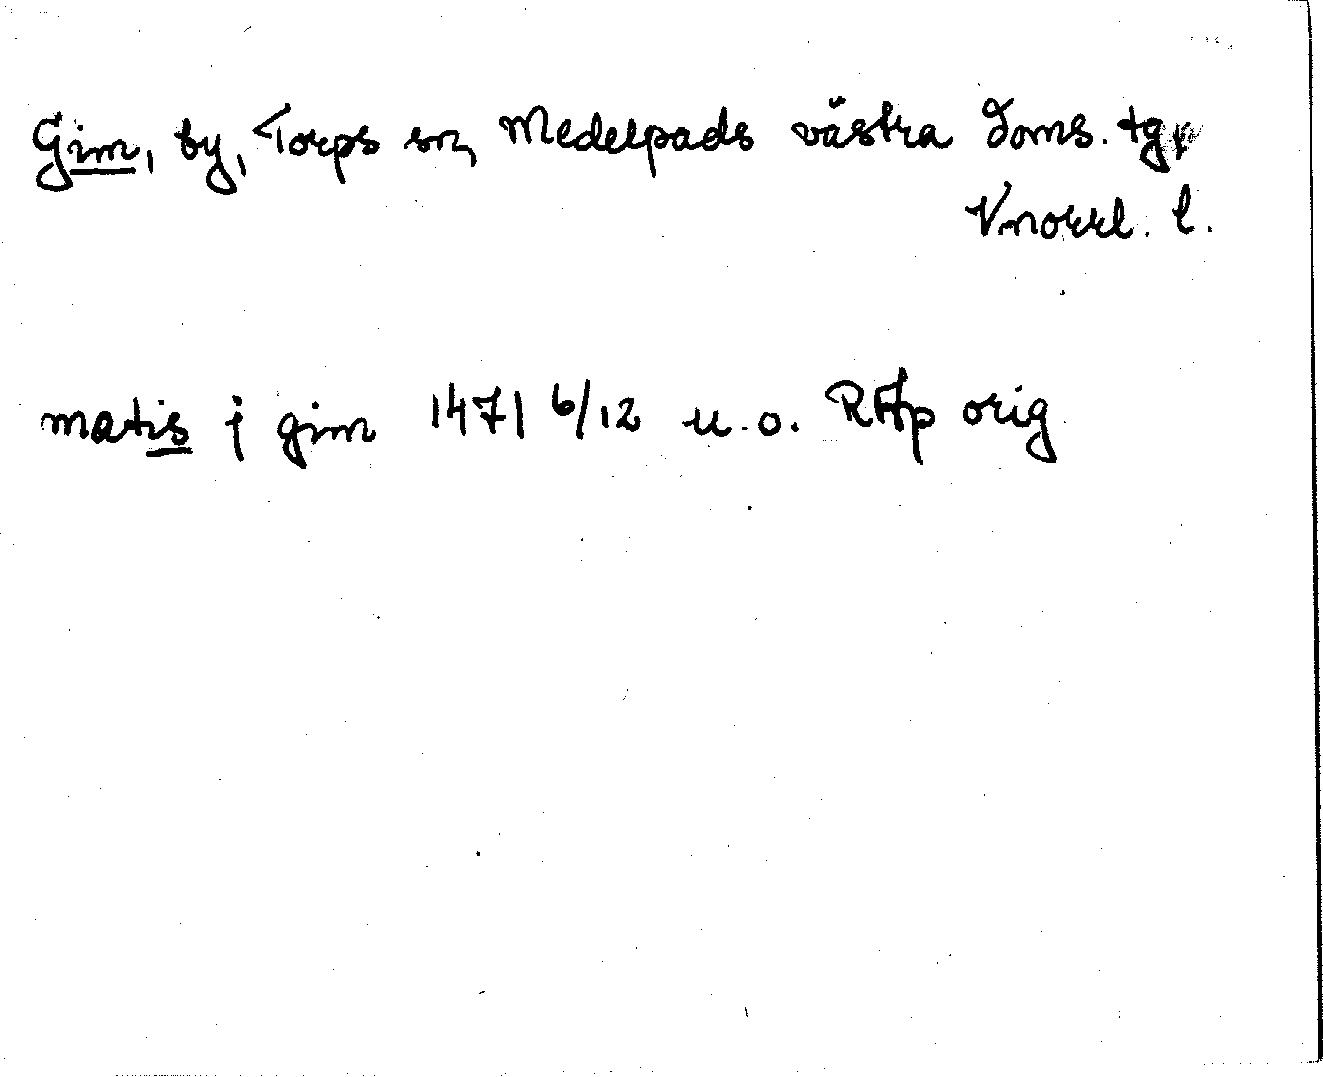 Gim, by, Torps sn, Medelpads västra doms. tg,
Vnorrl. l.
matis j gim 1471 6/12 u.o. RAp orig